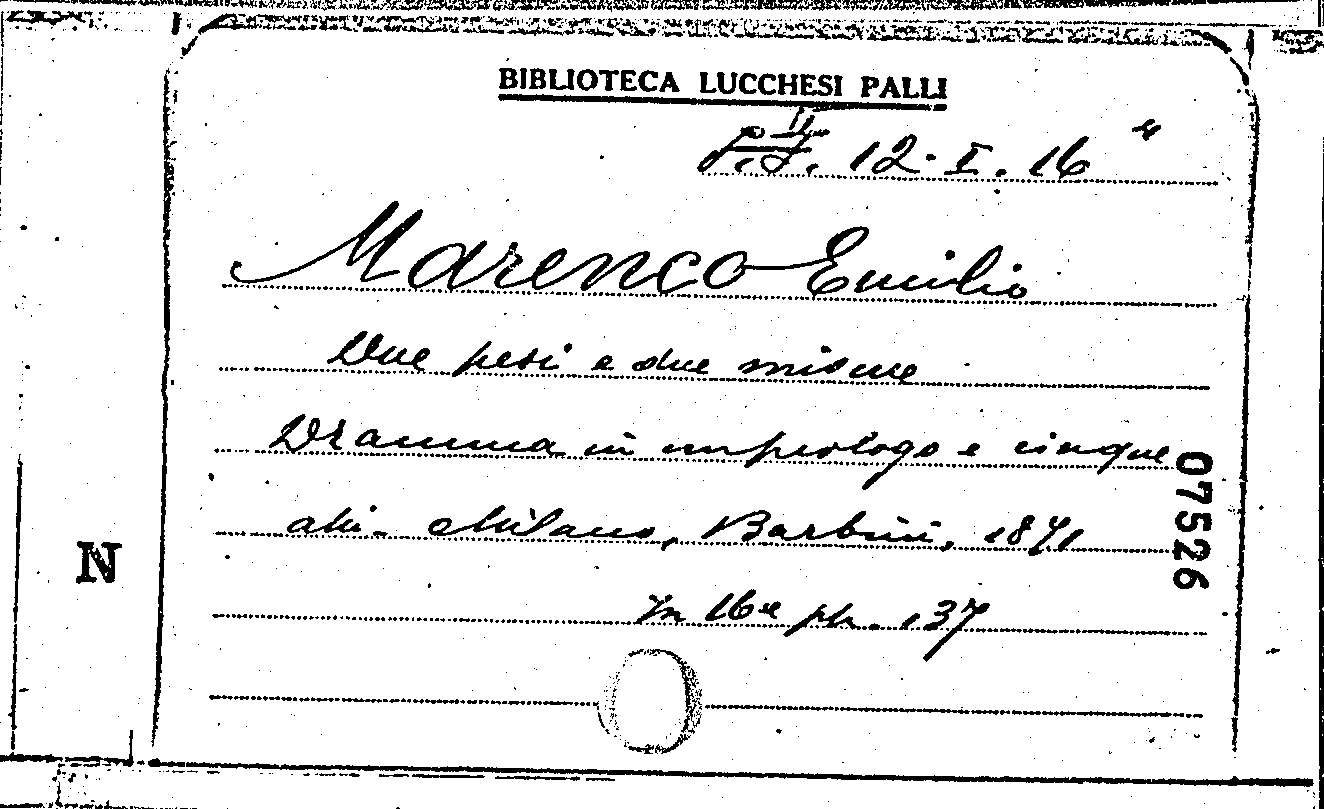 BIBLIOTECA LUCCHESI PALLI
12. I. 16
Marenco Emilio
Due pesi e due misure
Dramma in un prologo e cinque
atti. Milano, Barbini, 1871
In 16° pp. 137
07526
N